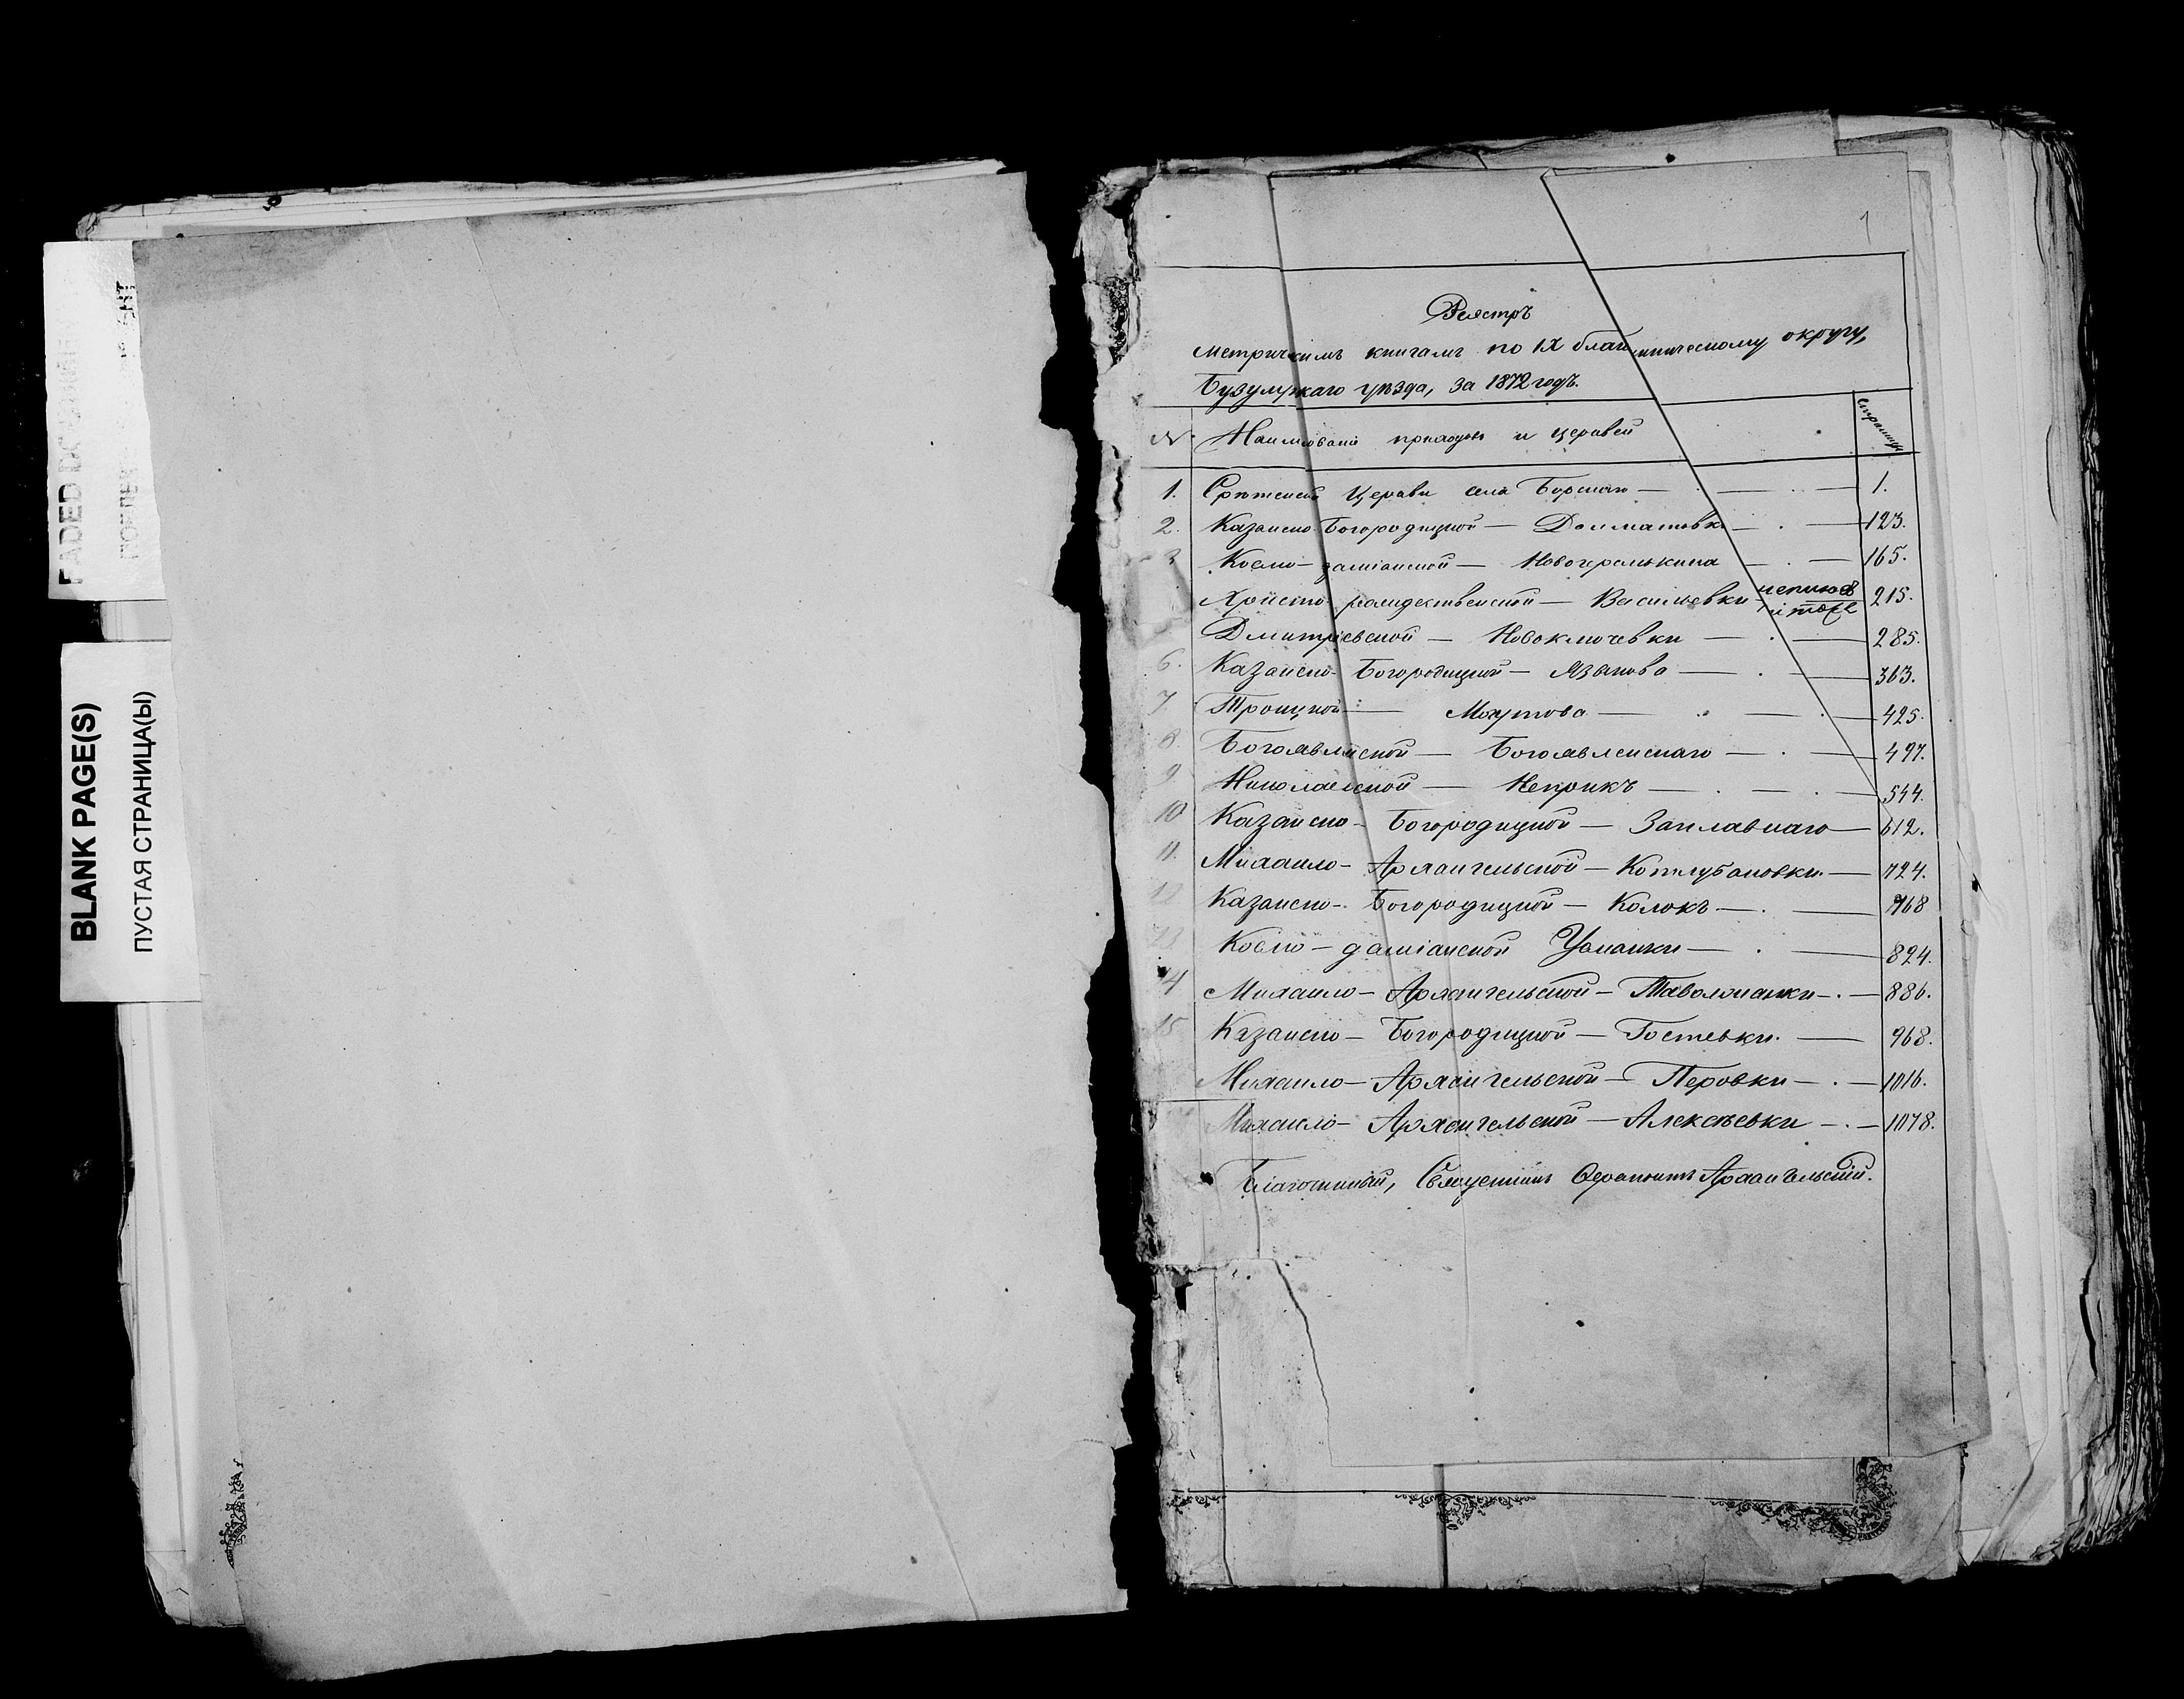 FADED DOCUMENT
BLANK PAGE(S)
ПУСТАЯ СТРАНИЦА(Ы)
1
Реестръ
метрическимъ книгамъ по IX благочинническому округу,
Бузулукскаго уѣзда, за 1872 годъ.
№ Наименованіе приходовъ и церквей страницы
1. Срѣтенской церкви села Борскаго — 1.
2. Казанско-Богородицкой — Долматовки — 123.
3 Космо-даміанской — Новогеранькина — 165.
Христо-рождественской — Васильевки 215.
Дмитріевской — Новоключевки — 285.
6. Казанско-Богородицкой — Языкова — 363.
7 Троицкой — Моутова — 425.
8. Богоявленской — Богоявленскаго — 497.
9 Николаевской — Неприкъ — 544.
10 Казанско-Богородицкой — Заплавнаго — 612.
11. Михаило-Архангельской — Котлубановки — 724.
12 Казанско-Богородицкой — Колокъ — 768
13 Космо-даміанской Усманки — 824.
14 Михаило-Архангельской — Таволжанки — 886.
15 Казанско-Богородицкой — Гостевки. — 968.
Михаило-Архангельской — Перовки — 1016.
Михаило-Архангельской — Алексѣевки — 1078.
Благочинный, Священникъ Архангельскій.